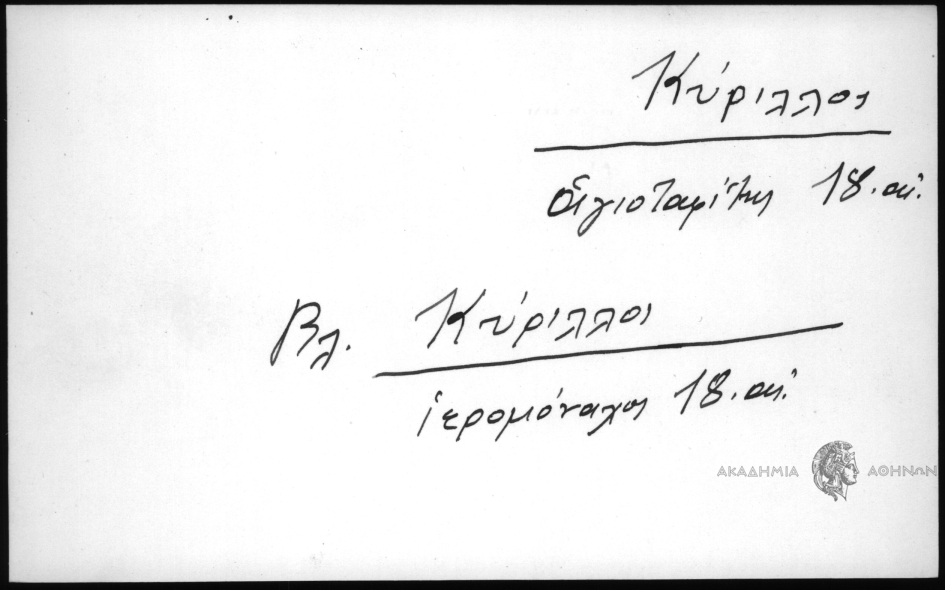 Κύριλλος
ἁγιοταφίτης 18. αἰ.
Βλ. Κύριλλος
ἱερομόναχος 18. αἰ.
ΑΚΑΔΗΜΙΑ ΑΘΗΝΩΝ